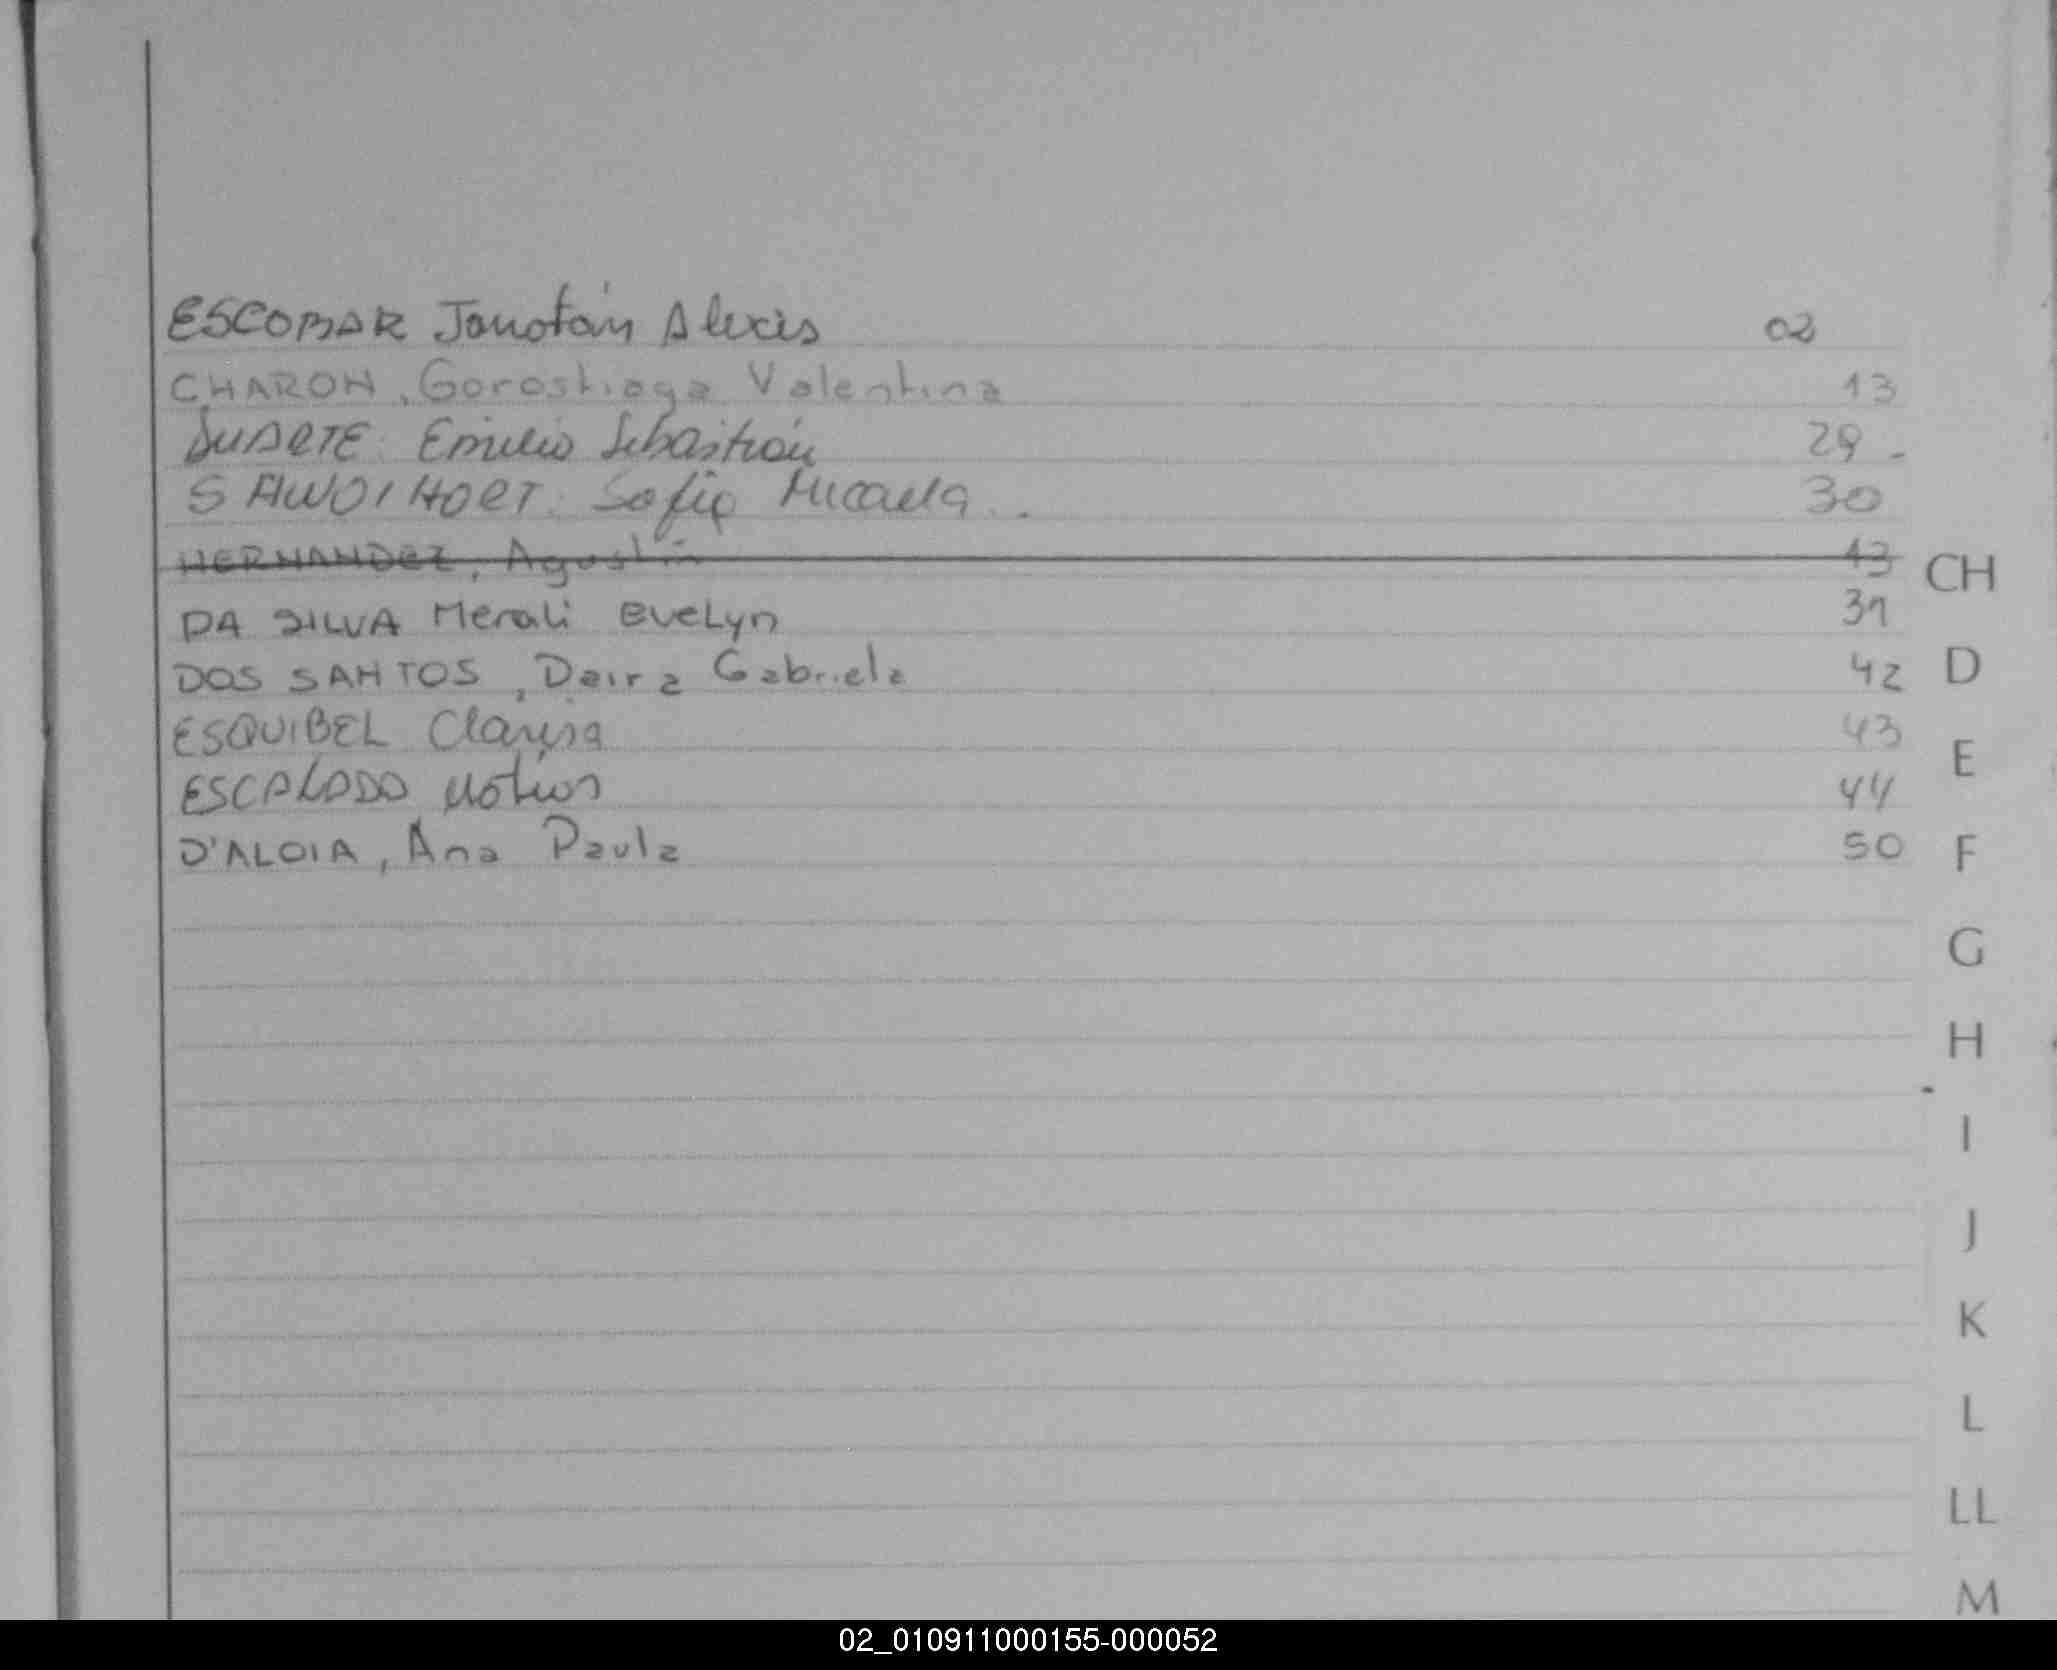 ESCOBAR Jonotán Alexis 02
CHARON, Gorostiaga Valentina 13
DUARTE. Emilio Sebastián 29-
SAWOIHORT. Sofia Micaela.. 30
HERNANDEZ, Agustín 13
CH
DA SILVA Merali EveLyn 31
DOS SANTOS, Daira Gabriela 42
D
ESQUIBEL Clarisa 43
E
ESCALADO Matías 44
D'ALOIA, Ana Paula 50
F
G
H
I
J
K
L
LL
M
02_010911000155-000052